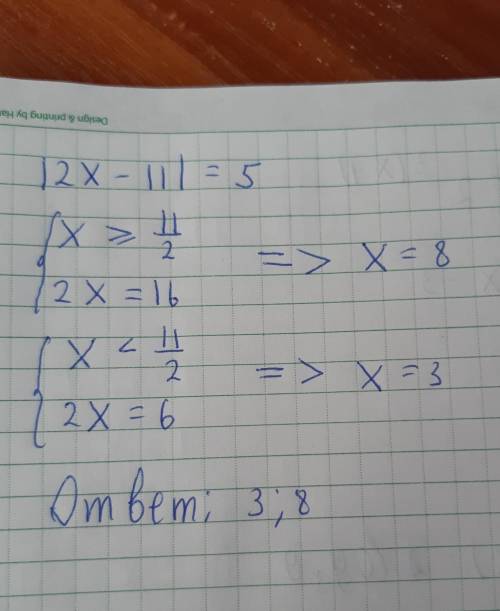 Design & printing by Ha
|2x - 11| = 5
{ x ≥ 11/2
2x = 16 => x = 8
{ x < 11/2
2x = 6 => x = 3
Ответ: 3; 8